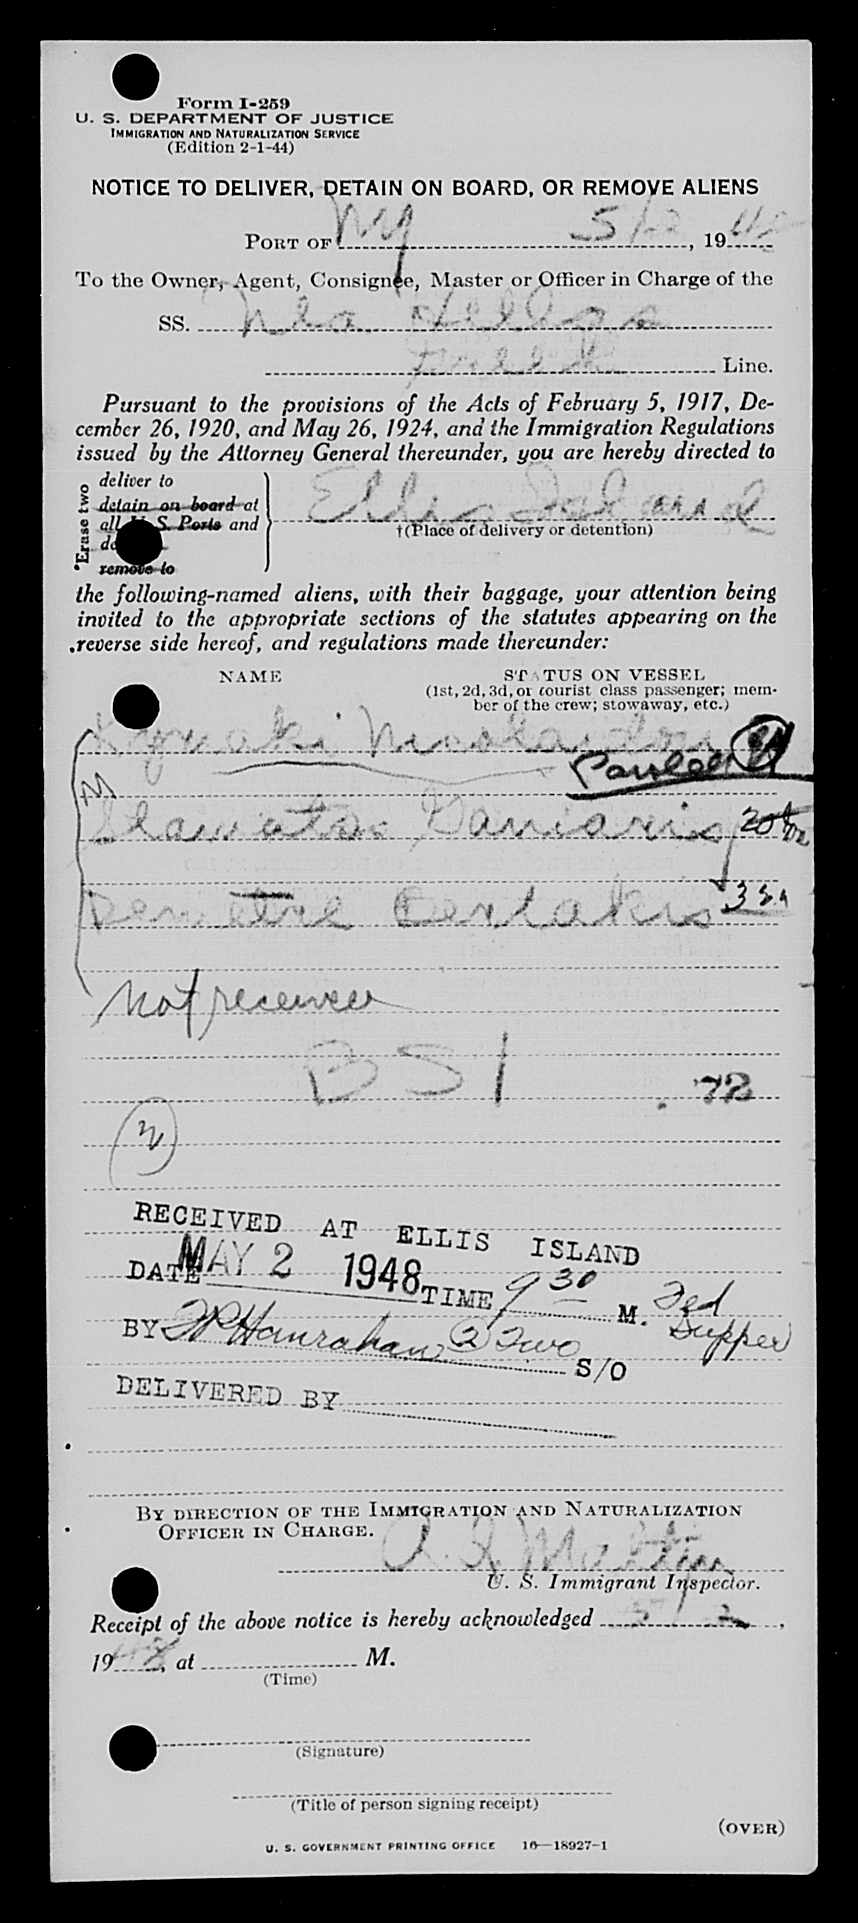 Form I-259
U. S. DEPARTMENT OF JUSTICE
IMMIGRATION AND NATURALIZATION SERVICE
(Edition 2-1-44)
NOTICE TO DELIVER, DETAIN ON BOARD, OR REMOVE ALIENS
PORT OF NY 5/2, 1948
To the Owner, Agent, Consignee, Master or Officer in Charge of the
SS. Nea Hellas
Greek Line.
Pursuant to the provisions of the Acts of February 5, 1917, De-
cember 26, 1920, and May 26, 1924, and the Immigration Regulations
issued by the Attorney General thereunder, you are hereby directed to
*Erase two
deliver to
detain on board at
all U S Ports and
remove to
Ellis Island
†(Place of delivery or detention)
the following-named aliens, with their baggage, your attention being
invited to the appropriate sections of the statutes appearing on the
reverse side hereof, and regulations made thereunder:
NAME
STATUS ON VESSEL
(1st, 2d, 3d, or tourist class passenger; mem-
ber of the crew; stowaway, etc.)
Nicolaidou
Not received
BSI
RECEIVED AT ELLIS ISLAND
DATE MAY 2 1948 TIME 9 30 M.
BY Hanrahan 2 Two S/O
DELIVERED BY
BY DIRECTION OF THE IMMIGRATION AND NATURALIZATION
OFFICER IN CHARGE.
U. S. Immigrant Inspector.
Receipt of the above notice is hereby acknowledged 5/2,
1948, at M.
(Time)
(Signature)
(Title of person signing receipt)
(OVER)
U. S. GOVERNMENT PRINTING OFFICE 16—18927-1